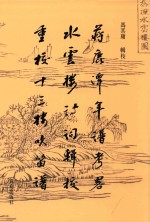 馮其庸 輯校
蔣鹿潭年譜考略
水雲樓詩詞輯校
重校十三樓吹笛譜